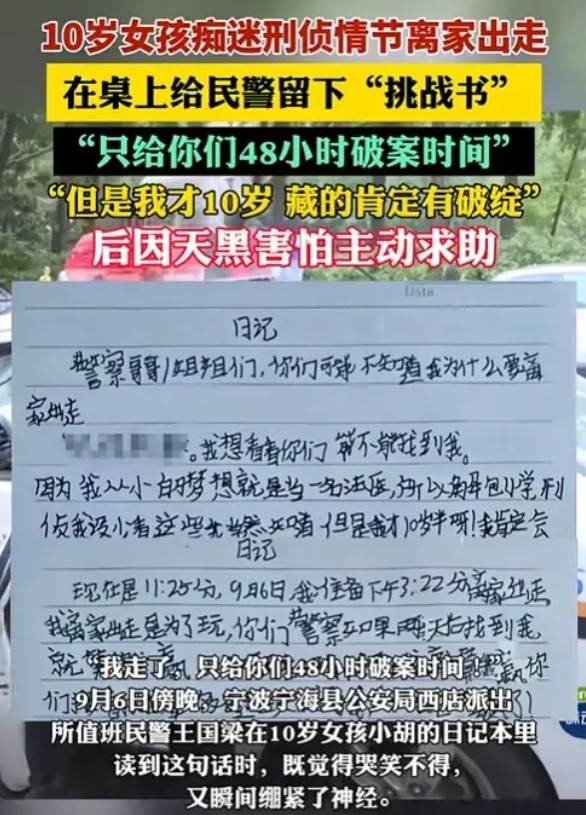 10岁女孩痴迷刑侦情节离家出走
在桌上给民警留下“挑战书”
“只给你们48小时破案时间”
“但是我才10岁 藏的肯定有破绽”
后因天黑害怕主动求助
Data
日记
警察哥哥/姐姐们，你们可能不知道我为什么要离
家出走
。我想看看你们能不能找到我。
因为我从小的梦想就是当一名法医，所以
侦我没少看这些当然知道 但是我才10岁半呀!我肯定会
日记
现在是11:25分，9月6日，我准备下午3:22分离家出走，
我离家出走是为了玩，你们警察如果两天后找到我
就
“我走了，只给你们48小时破案时间”
9月6日傍晚，宁波宁海县公安局西店派出
所值班民警王国梁在10岁女孩小胡的日记本里
读到这句话时，既觉得哭笑不得，
又瞬间绷紧了神经。